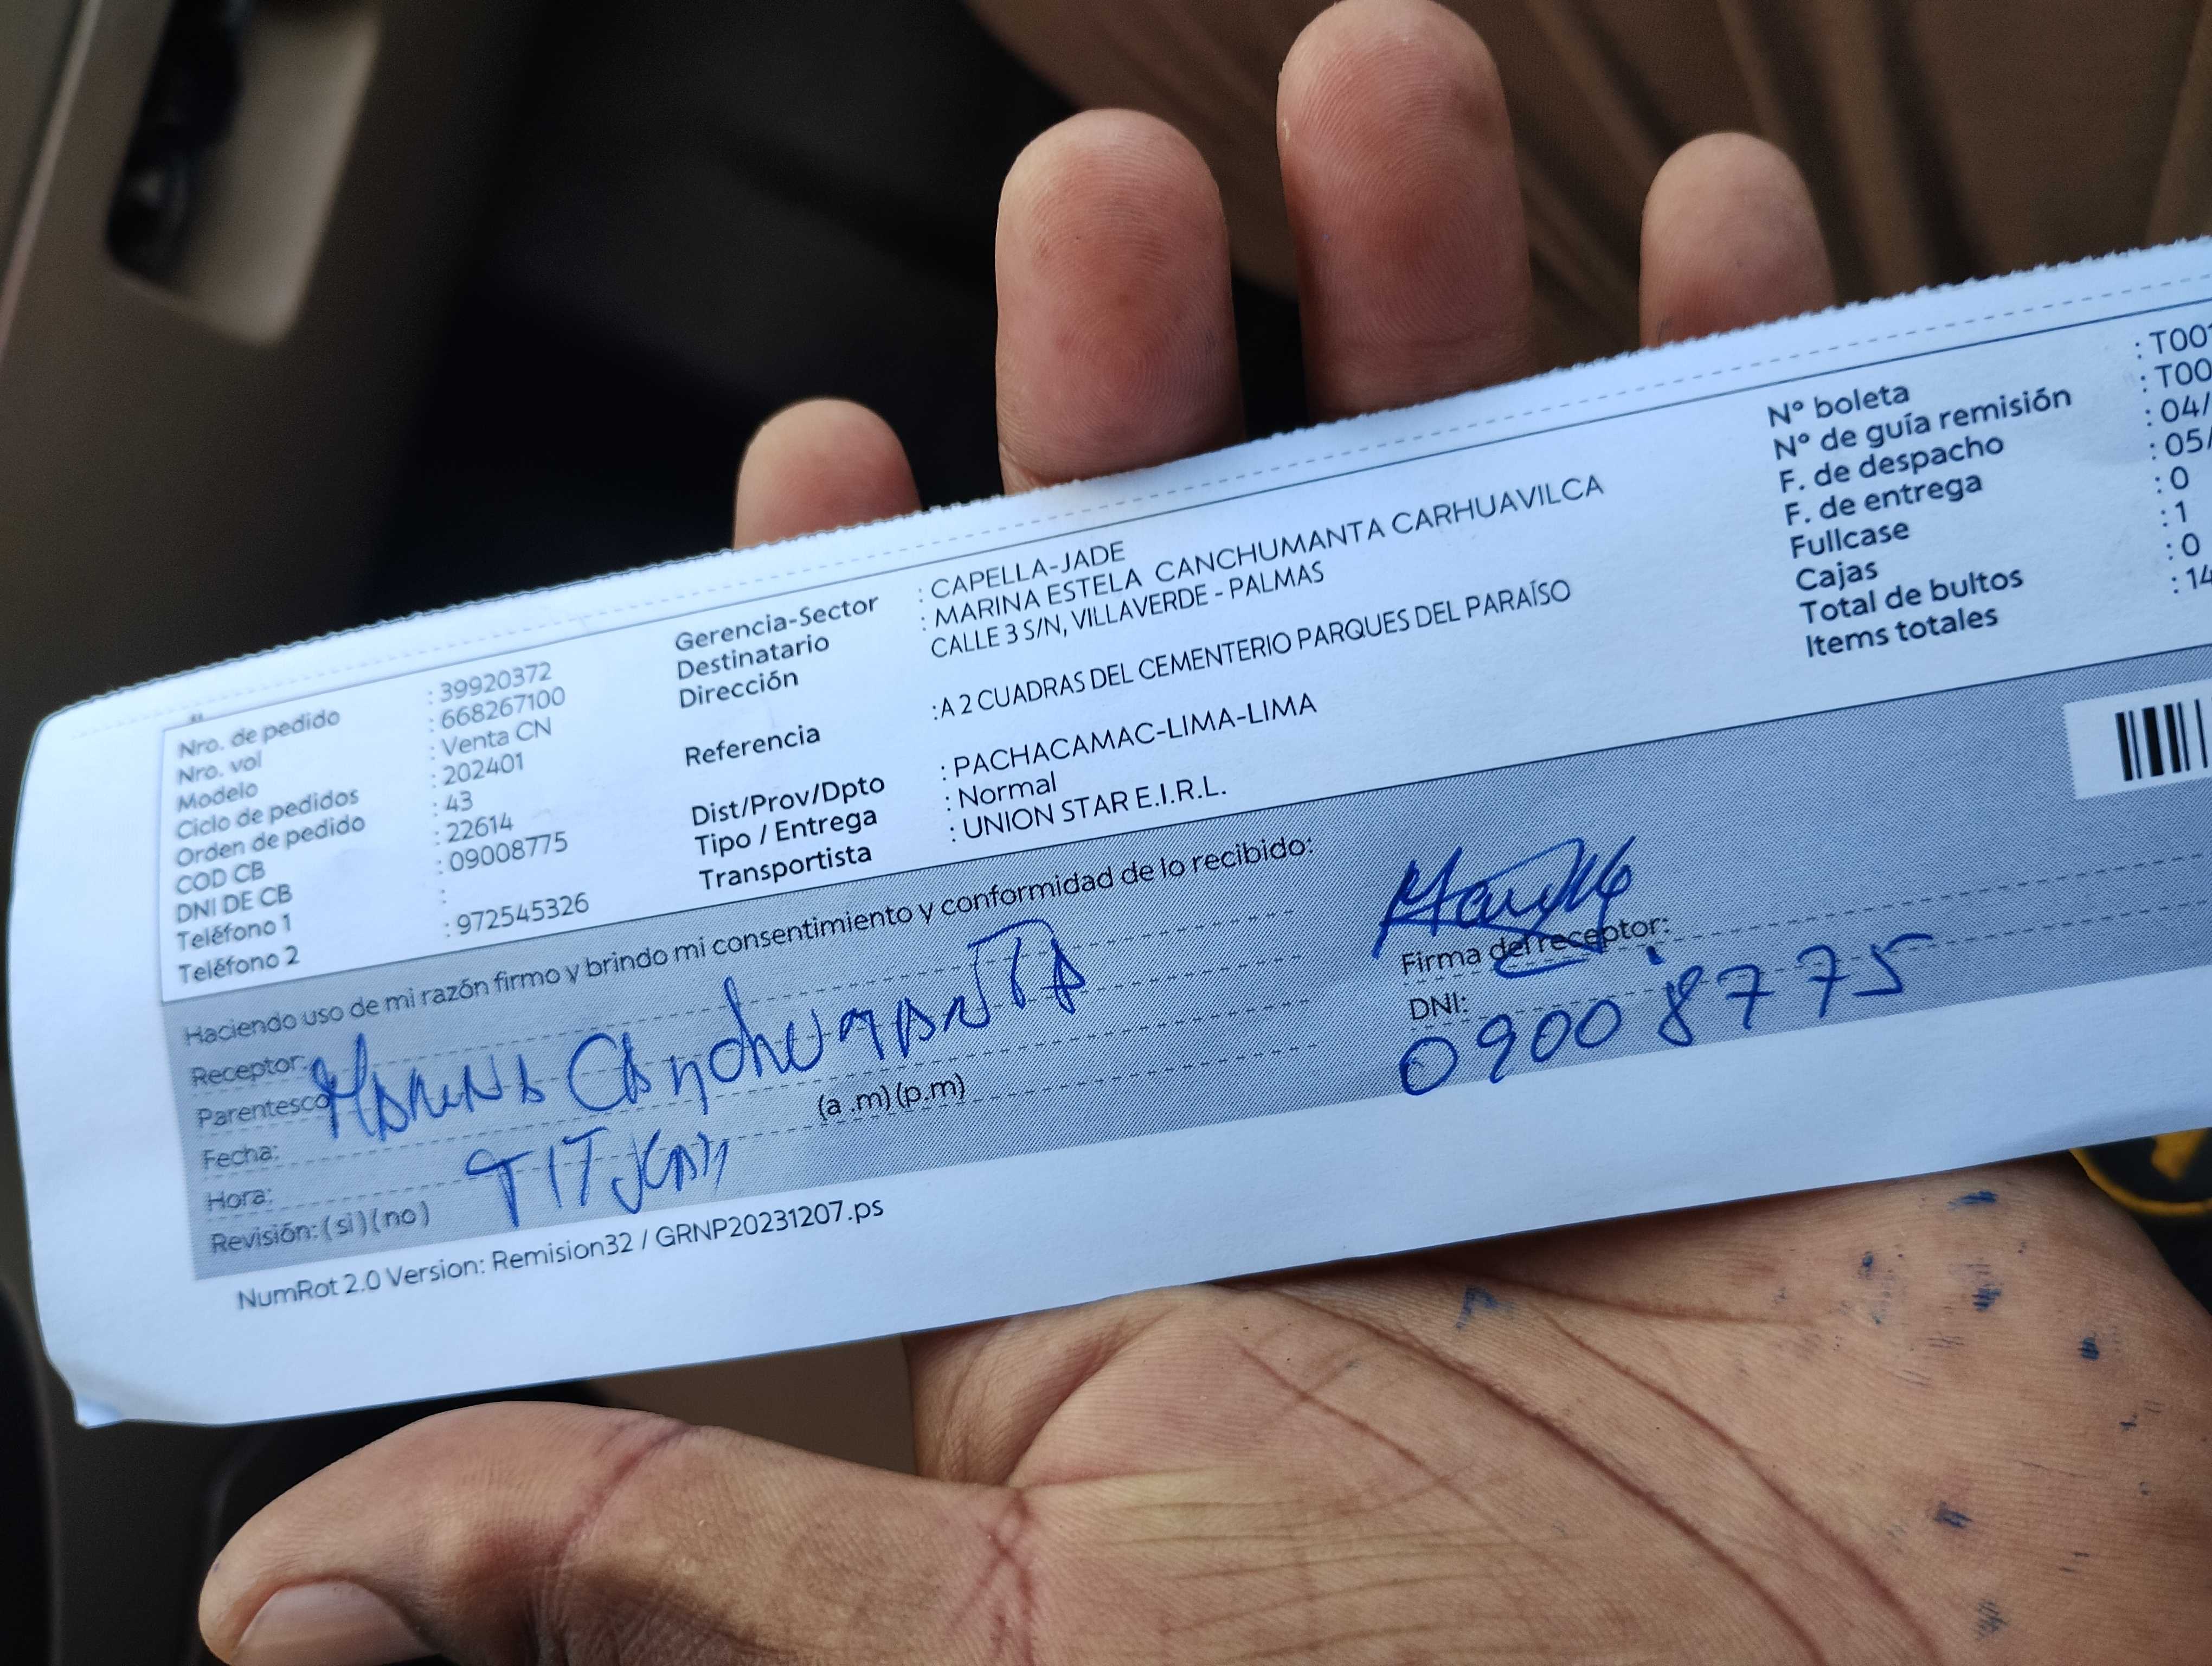 Nro. de pedido : 39920372
Nro. vol : 668267100
Modelo : Venta CN
Ciclo de pedidos : 202401
Orden de pedido : 43
COD CB : 22614
DNI DE CB : 09008775
Teléfono 1 :
Teléfono 2 : 972545326
Gerencia-Sector : CAPELLA-JADE
Destinatario : MARINA ESTELA CANCHUMANTA CARHUAVILCA
Dirección CALLE 3 S/N, VILLAVERDE - PALMAS
Referencia :A 2 CUADRAS DEL CEMENTERIO PARQUES DEL PARAÍSO
Dist/Prov/Dpto : PACHACAMAC-LIMA-LIMA
Tipo / Entrega : Normal
Transportista : UNION STAR E.I.R.L.
N° boleta : T001
N° de guía remisión : T00
F. de despacho : 04/
F. de entrega : 05/
Fullcase : 0
Cajas : 1
Total de bultos : 0
Items totales : 14
Haciendo uso de mi razón firmo y brindo mi consentimiento y conformidad de lo recibido:
Receptor: MARINA CANchUMANTA
Parentesco
Fecha: TITULAR
Hora: (a .m) (p.m)
Revisión: ( si ) ( no )
Firma del receptor:
DNI:
09008775
NumRot 2.0 Version: Remision32 / GRNP20231207.ps